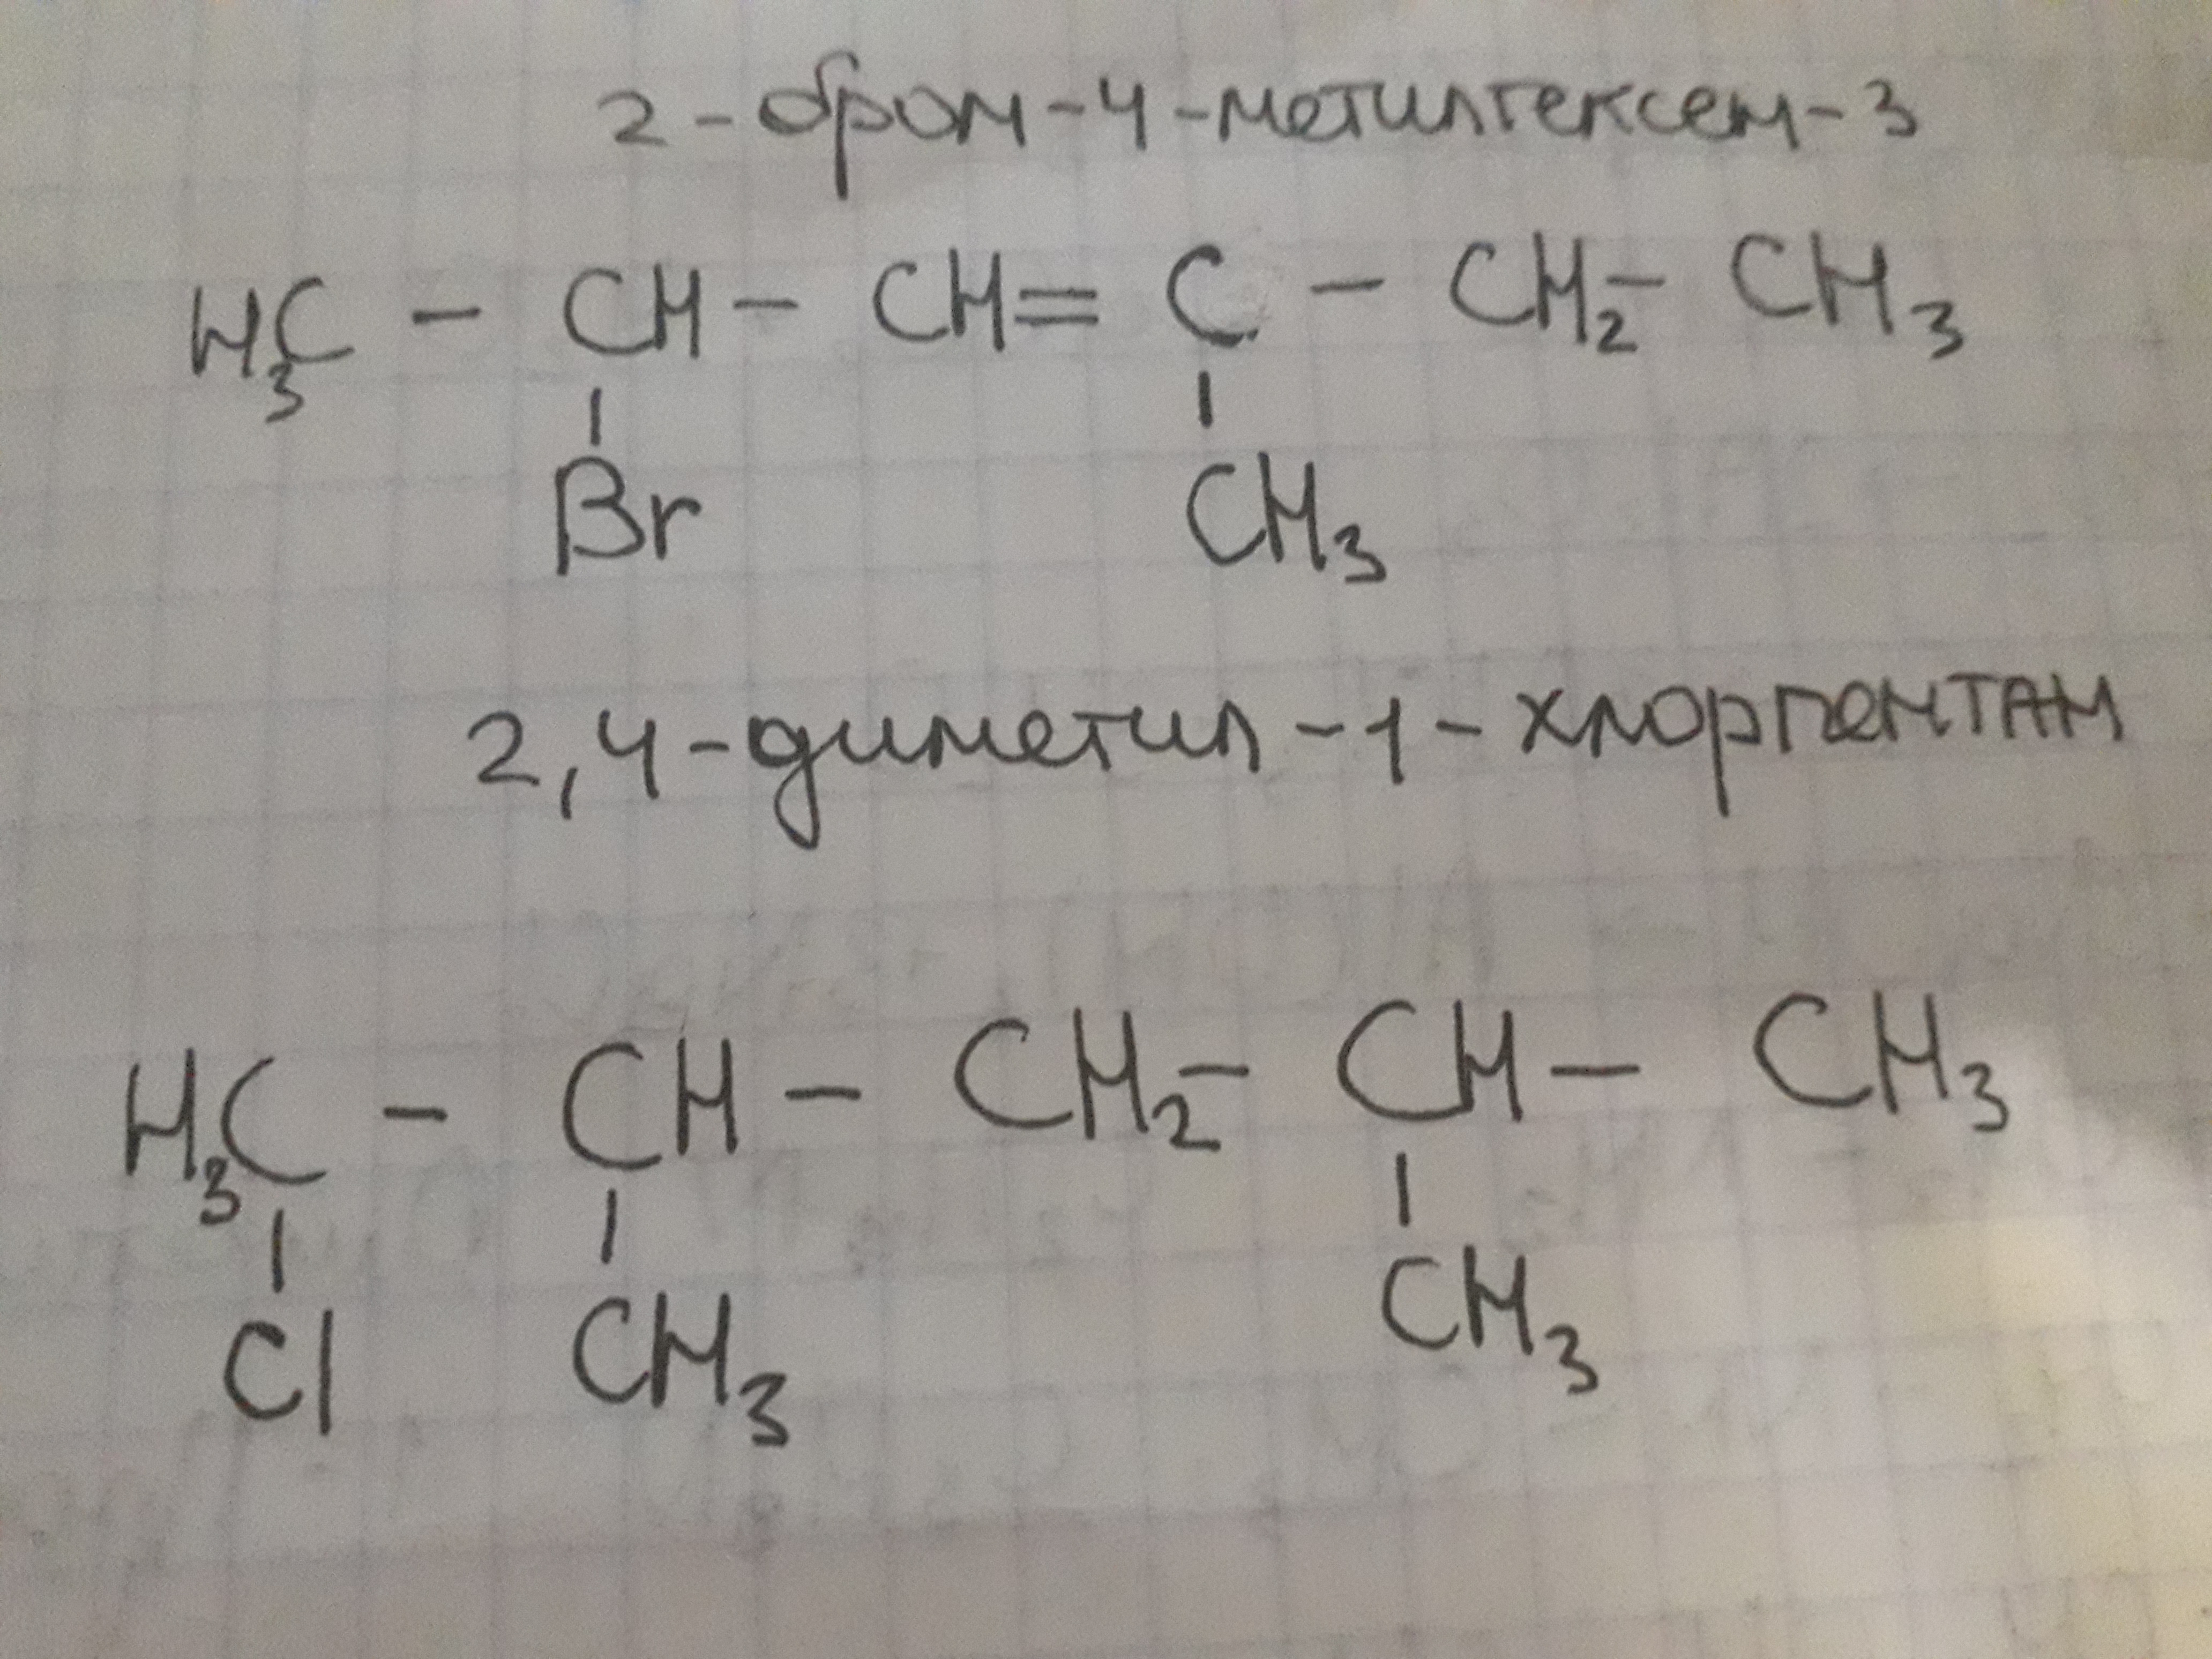 2-бром-4-метилгексен-3
H₃C - CH - CH = C - CH₂ - CH₃
Br CH₃
2,4-диметил-1-хлорпентан
H₃C - CH - CH₂ - CH - CH₃
Cl CH₃ CH₃